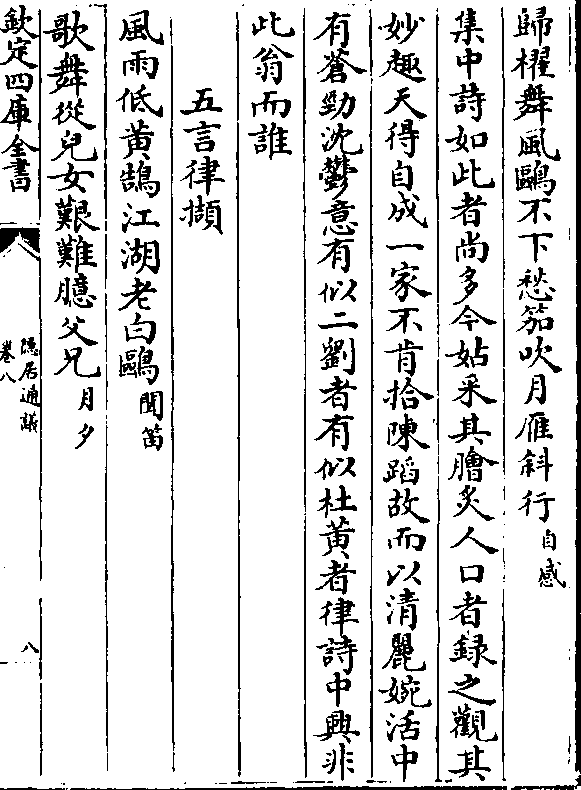 歸櫂舞風鷗不下愁笳吹月雁斜行自感
集中詩如此者尚多今姑采其膾炙人口者録之觀其
妙趣天得自成一家不肯拾陳蹈故而以清麗婉活中
有蒼勁沈鬱意有似二劉者有似杜黄者律詩中興非
此翁而誰
五言律擷
風雨低黄鵠江湖老白鷗聞笛
歌舞從兒女艱難臆父兄月夕
欽定四庫全書
隱居通議
卷八
八